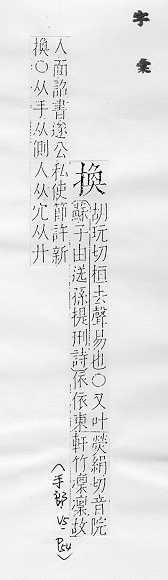 字彙
換
胡玩切桓去聲易也○又叶熒絹切音院
蘇子由送孫提刑詩依依東軒竹凛凛故
人面詔書遂公私使節許新
換○从手从側人从穴从廾
(手部